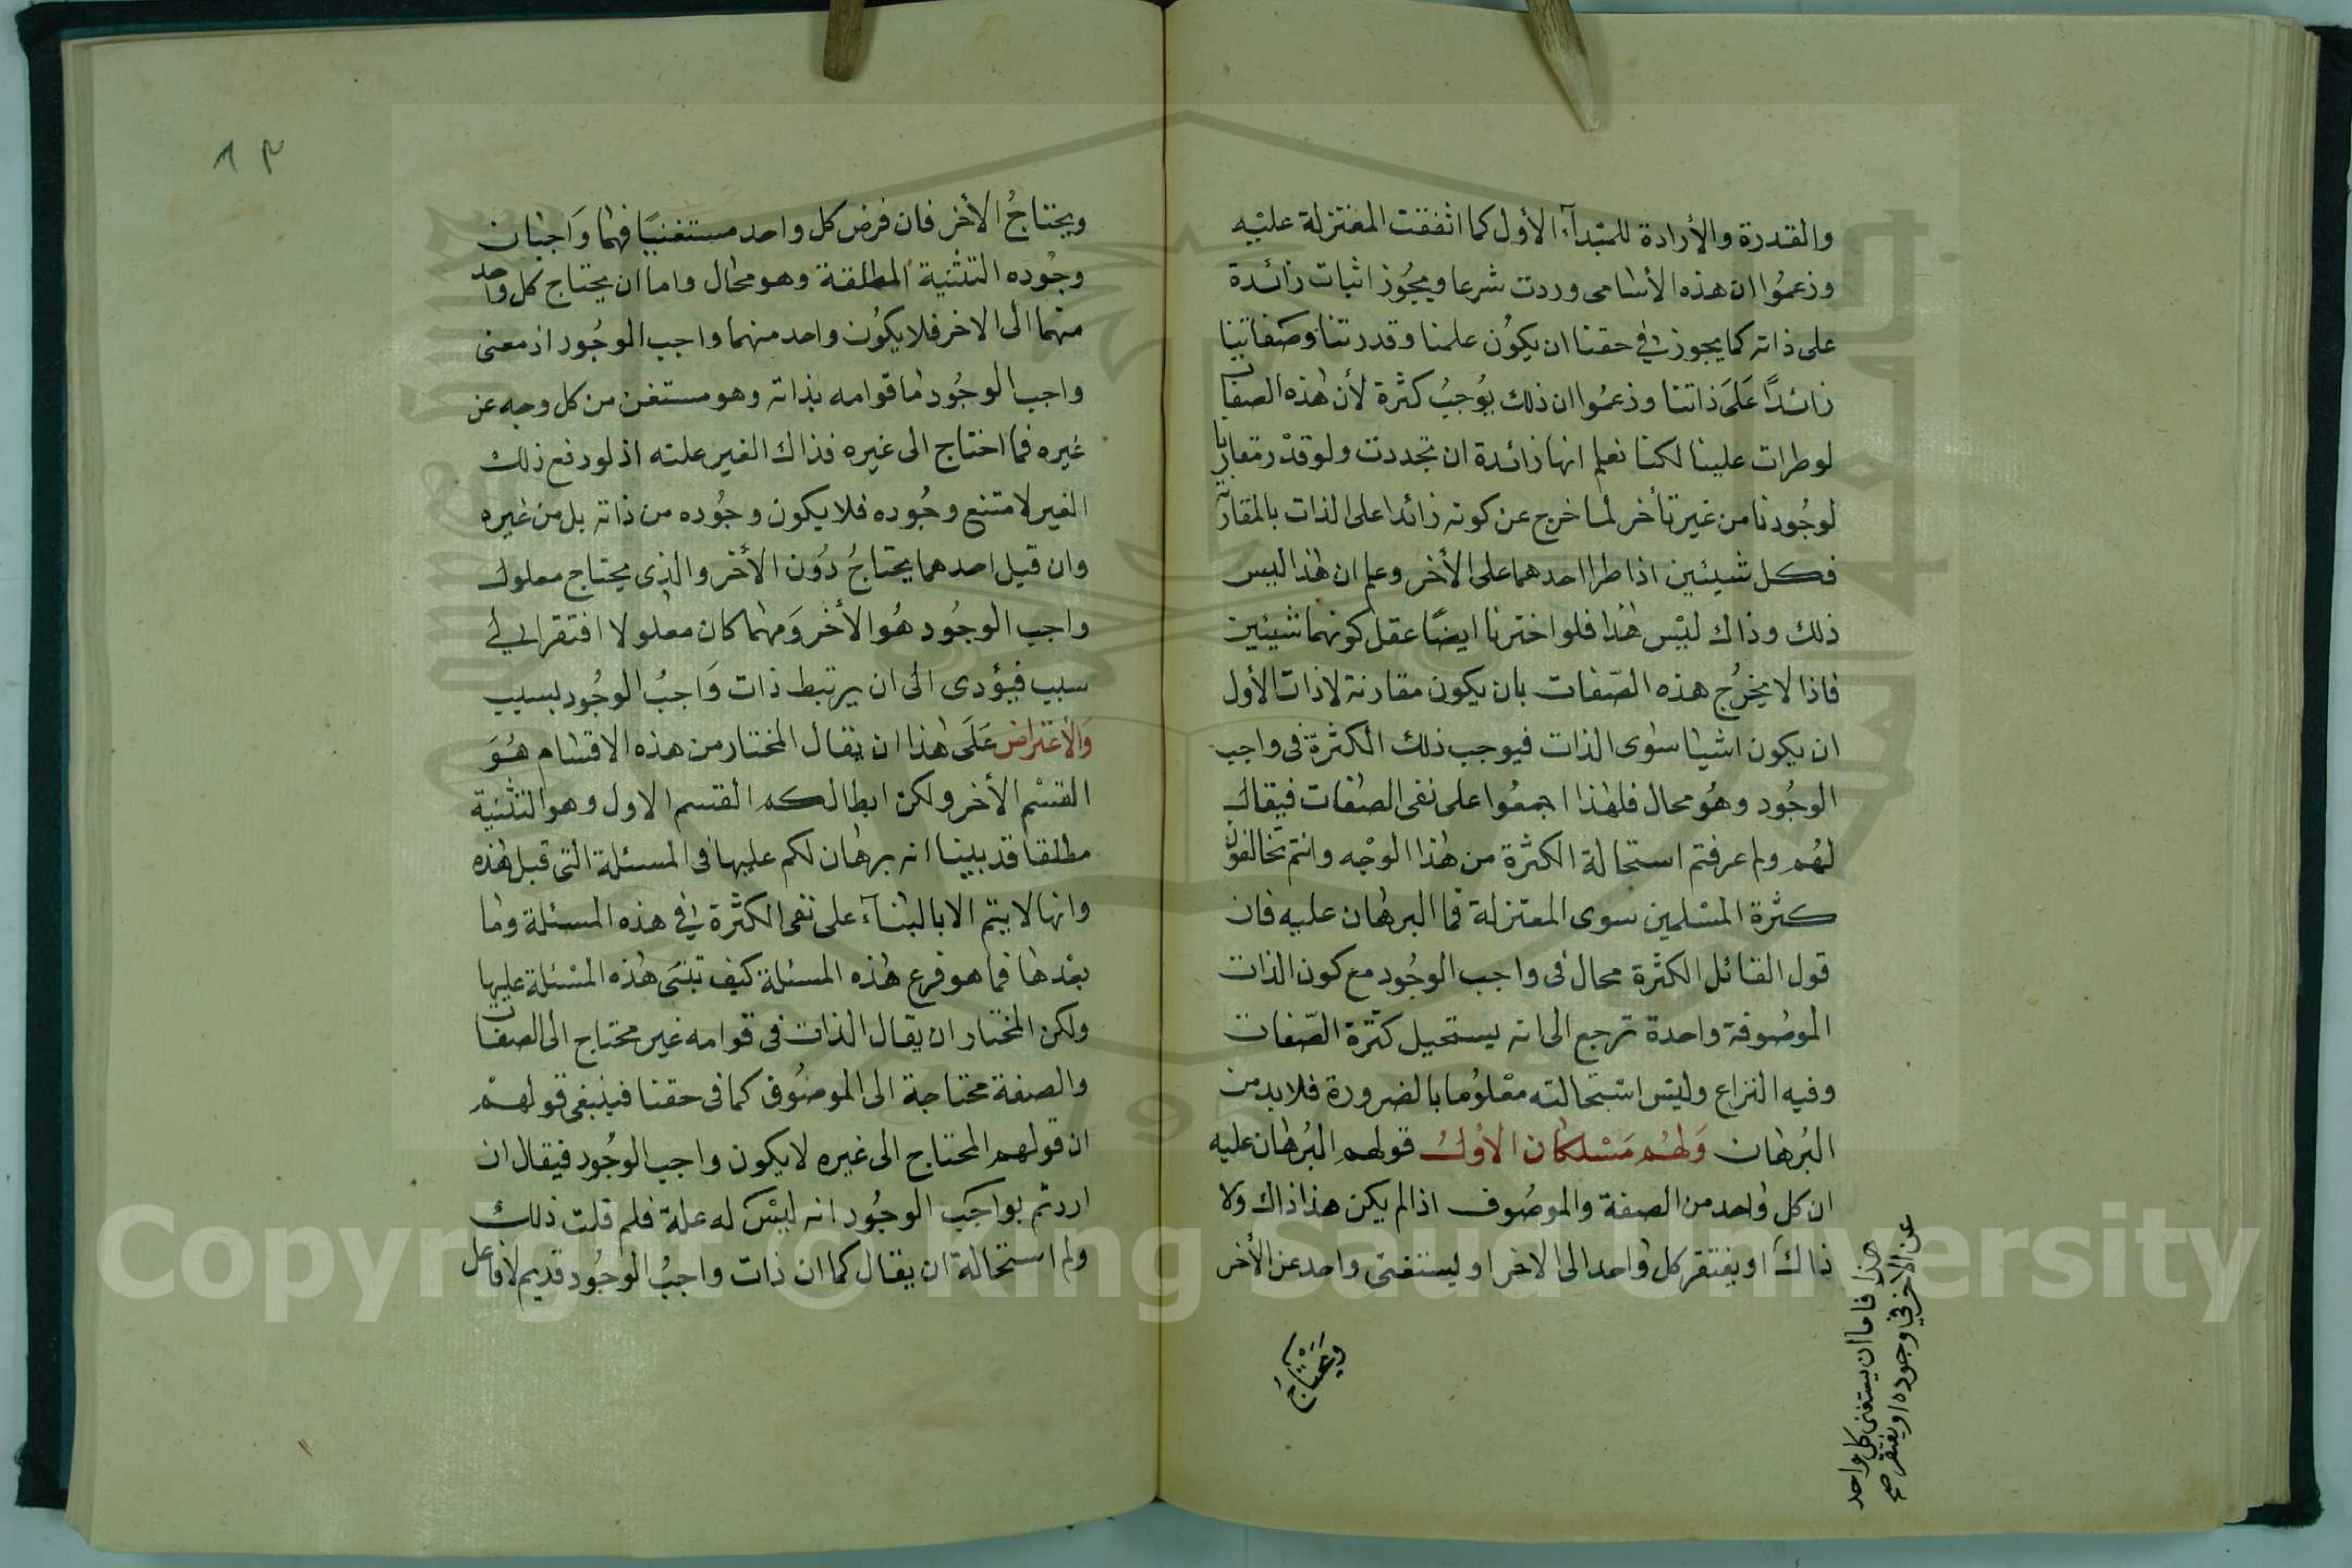 والقدرة والأرادة للمبدآء الأول كما اتفقت المعتزلة عليه
وزعموا ان هذه الأسامى وردت شرعا ويجوز اثبات زائدة
على ذاته كما يجوز في حقنا ان يكون علمنا وقدرتنا وصفاتنا
زائدًا عَلَى ذاتنا وزعموا ان ذلك يوجب كثرة لأن هذه الصفات
لوطرات علينا لكنا نعلم انها زائدة ان تجددت ولو قدر مقارنا
لوجودنا من غير تأخر لما خرج عن كونه زائدا على الذات بالمقارنة
فكل شيئين اذا طرا احدهما على الأخر وعلم ان هذا ليس
ذلك وذاك ليس هذا فلو اخترنا ايضًا عقل كونهما شيئين
فاذا لا يخرج هذه الصّفات بان يكون مقارنة لاذات الأول
ان يكون اشيا سوى الذات فيوجب ذلك الكثرة فى واجب
الوجُود وهُو محال فلهذا اجمعُوا على نفى الصفات فيقال
لهُم ولم عرفتم استحالة الكثرة من هذا الوجه وانتم تخالفون
كثرة المسلمين سوى المعتزلة فما البرهان عليه فان
قول القائل الكثرة محال فى واجب الوجُود مع كون الذات
الموصُوفة واحدة ترجع الى انه يستحيل كثرة الصّفات
وفيه النزاع وليس استحالته معْلوُما بالضرورة فلابد من
البُرهان وَلهُم مَسْلكان الأولُ قولهم البُرهان عليه
ان كل واحد من الصفة والموصُوف اذا لم يكن هذا ذاك ولا
ذاك او يفتقر كل واحد الى الاخر او ليستغنى واحد عن الأخر
هذا فاما ان يستغنى كل واحد
عن الآخر في وجوده او يفتقر صح
وَيَحْتاجُ
١٣
ويحتاجُ الأخر فان فرض كل واحد مستغنيًا فهما وَاجبان
وجُوده التثنية المطلقة وهو محال واما ان يحتاج كل واحد
منهما الى الاخر فلا يكُون واحد منهما واجب الوجُود اذ معنى
واجب الوجُود ما قوامه بذاته وهو مستغن من كل وجه عن
غيره فما احتاج الى غيره فذاك الغير علته اذ لو رفع ذلك
الغير لامتنع وجُوده فلا يكون وجُوده من ذاته بل من غيره
وان قيل احدهما يحتاجُ دُون الأخر والذى يحتاج معلول
واجب الوجُود هُو الأخر وَمهما كان معلولا افتقر الي
سبب فيؤدى الى ان يرتبط ذات وَاجبُ الوجُود بسبب
وَالأعتراض عَلَى هذا ان يقال المختار من هذه الاقسام هُوَ
القسْم الأخر ولكن ابطالكم القسم الاول وهو التثنية
مطلقا قد بينا انه برهان لكم عليها فى المسئلة التى قبل هذه
وانها لا يتم الا بالبنآء على نفى الكثرة في هذه المسئلة وما
بعْدها فما هو فرع هذه المسئلة كيف تبتنى هذه المسْئلة عليها
ولكن المختار ان يقال الذات فى قوامه غير محتاج الى الصفات
والصفة محتاجة الى الموصُوف كما فى حقنا فينبغى قولهم
ان قولهم المحتاج الى غيره لا يكون واجب الوجُود فيقال ان
اردتم بواجب الوجُود انه ليس له علة فلم قلت ذلك
ولم استحالة ان يقال كما ان ذات واجبُ الوجُود قديم لا فاعل
Copyright © King Saud University